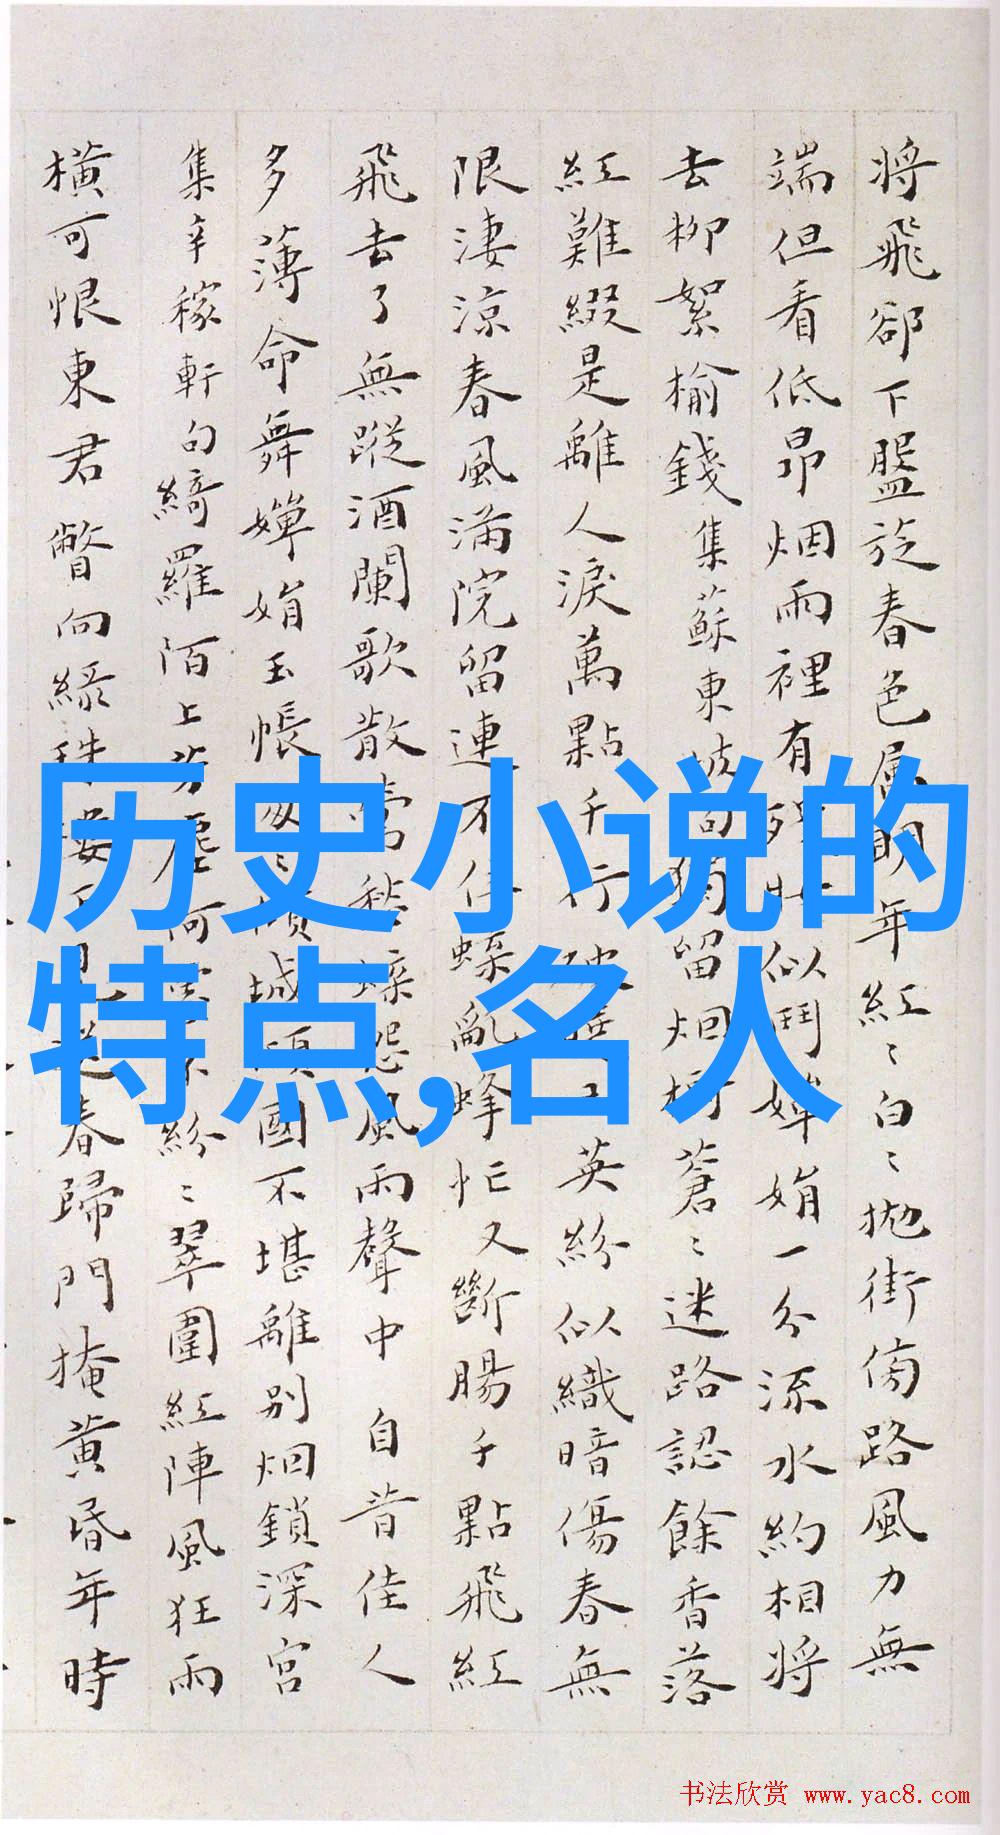 将飛卻下盤旋春色属明年紅〻白〻抛街傍路風力無
端但看低昂烟雨裡有似鬥嬋娟一分流水約相将
去柳絮榆錢集蘇東坡句留烟樹蒼〻迷路認餘香落
紅難綴是離人淚萬點千行英紛似織暗傷春無
限淒涼春風滿院留連不住蝶亂蜂忙又斷腸千點飛紅
飛去了無蹤酒闌歌散鶯愁蝶怨風雨聲中自昔佳人
多薄命舞嬋娟玉帳匆〻傾城傾國不堪離別烟鎖深宮
集辛稼軒句綺羅陌上芳塵何紛〻翠圍紅陣風狂雨
橫可恨東君瞥向緑珠楼下見送春歸門掩黃昏年時
历史小说的
特点,名人
书法欣赏 www.yac8.com